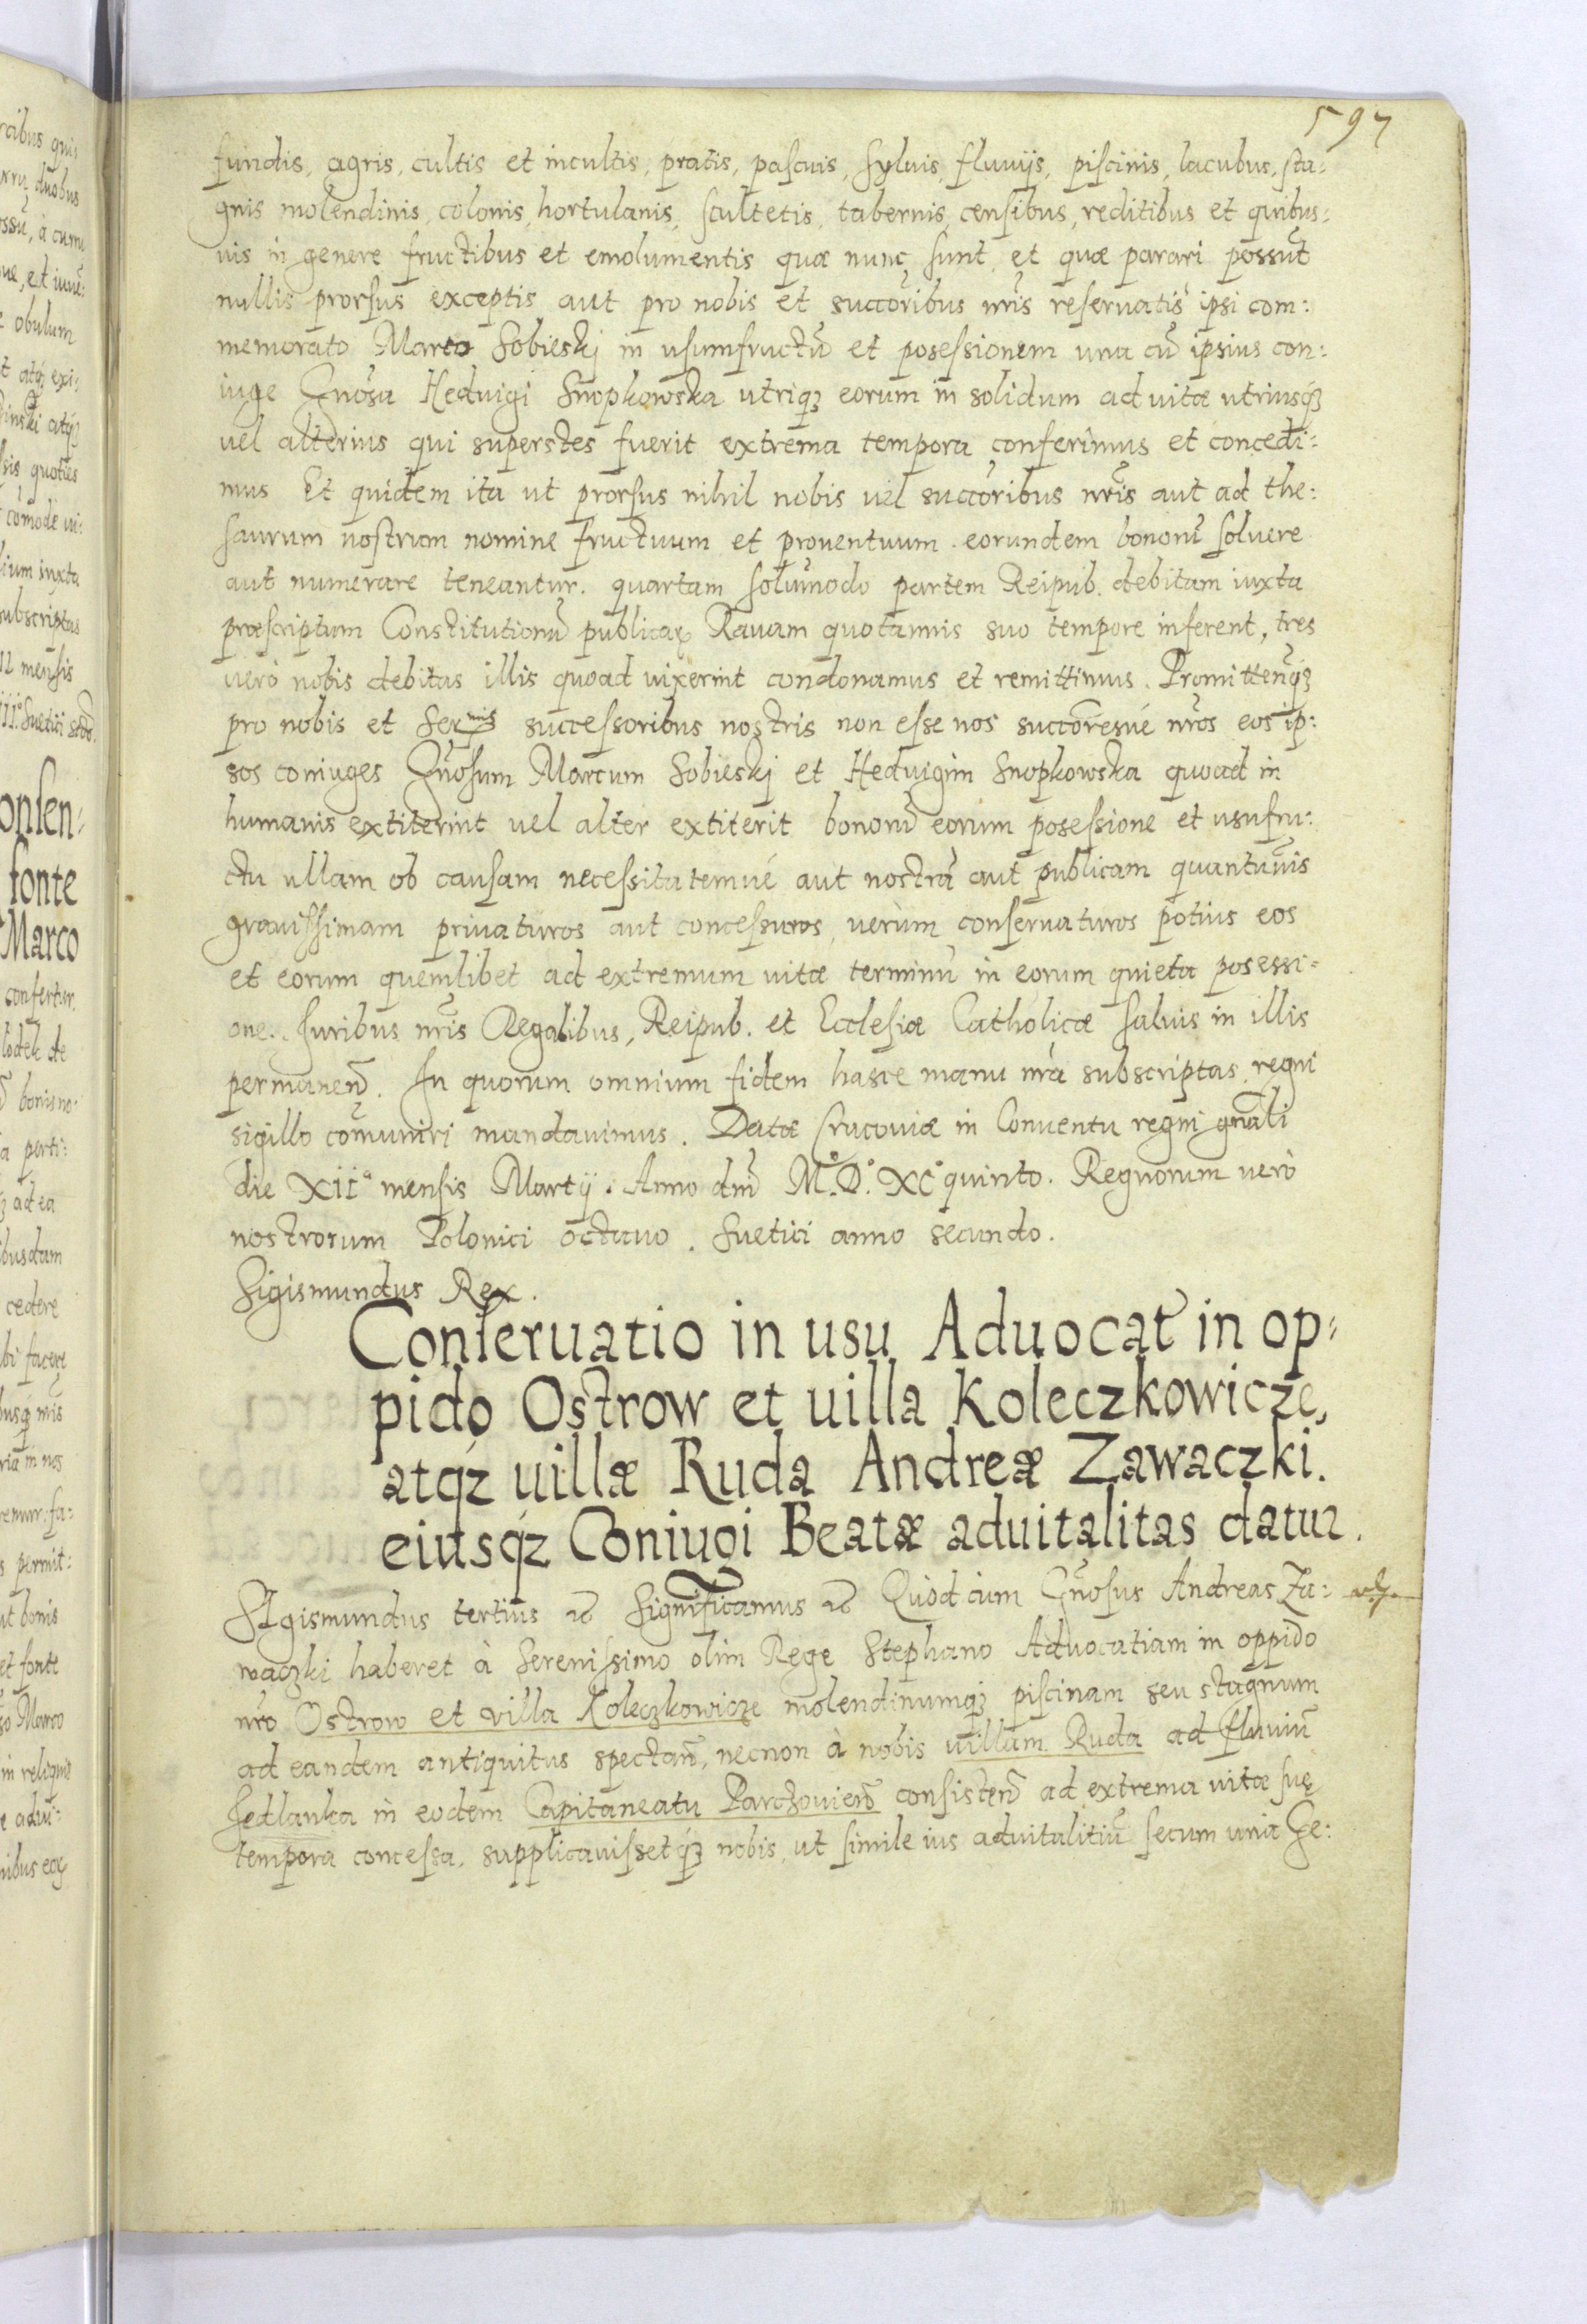 597
fundis, agris, cultis et incultis, pratis, pascuis, sylvis, fluvijs, piscinis, lacubus, sta:
gnis molendinis, colonis, hortulanis, scultetis, tabernis, censibus, reditibus et quibus:
uis in genere fructibus et emolumentis quæ nunc sunt et quæ parari possūt
nullis prorsus exceptis aut pro nobis et succōribus nr̄is reseruatis ipsi com:
memorato Marco Sobieskj in usumfructū et possessionem una cū ipsius con:
iuge Gnōsa Heduigi Snopkowska utriqꝫ eorum in solidum ad uitæ utriusqꝫ
uel alterius qui superstes fuerit extrema tempora conferimus et concedi:
mus Et quidem ita ut prorsus nihil nobis uel succōribus nr̄is aut ad the:
saurum nostrum nomine fructuum et prouentuum eorundem bonorū soluere
aut numerare teneantur. quartam solūmodo partem Reipub. debitam iuxta
præscriptum Constitutionū publicaꝝ Rauam quotannis suo tempore inferent, tres
uerò nobis debitas illis quoad uixerint condonamus et remittimus. Promitten̄qꝫ
pro nobis et Sernis successoribus nostris non esse nos succōresué nr̄os eos ip:
sos coniuges Gnōsum Marcum Sobieskj et Heduigim Snopkowska quoad in
humanis extiterint uel alter extiterit bonorū eorum posessione et usufru:
ctu ullam ob causam necessitatemué aut nostrā aut publicam quantūuis
grauissimam priuaturos aut concessuros, uerùm conseruaturos potius eos
et eorum quemlibet ad extremum uitæ terminū in eorum quieta posessi=
one. Iuribus nr̄is Regalibus, Reipub. et Ecclesiæ Catholicæ saluis in illis
permanen̄. In quorum omnium fidem hasce manu nr̄a subscriptas regni
sigillo com̄uniri mandauimus. Datæ Cracouiæ in Conuentu regni gn̄ali
die XII° mensis Martij. Anno dn̄i M°.D.° XC° quinto. Regnorum uerò
nostrorum Polonici octauo. Suetici anno secundo.
Sigismundus Rex.
Conseruatio in usu Aduocat̄ in op=
pido Ostrow et uilla Koleczkowicze,
atqꝫ uillæ Ruda Andreæ Zawaczki.
eiusqꝫ Coniugi Beatæ aduitalitas datur.
SIgismundus tertius ꝛc Significamus ꝛc Quod cum Gnōsus Andreas Za:
waczki haberet à Serenissimo olim Rege Stephano Aduocatiam in oppido
nr̄o Ostrow et villa Koleczkowicze molendinumqꝫ piscinam seu stagnum
ad eandem antiquitus spectan̄, necnon à nobis uillam Ruda ad fluuiū
Jedlanka in eodem Capitaneatu Parczouien̄ consisten̄ ad extrema uitæ suę
tempora concessa, supplicauissetqꝫ nobis, ut simile ius aduitalitiū secum unà Ge: